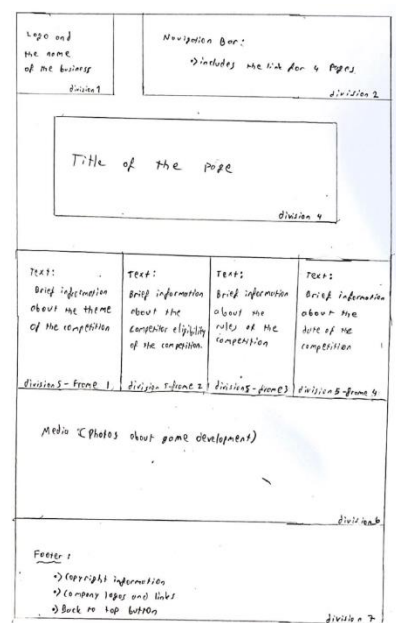 Logo and
the name
of the business
division 1
Navigation Bar:
•) includes the link for 4 Pages.
division 2
Title of the page
division 4
Text:
Brief information
about the theme
of the competition
division 5 - Frame 1
Text:
Brief information
about the
competitor eligibility
of the competition.
division 5 - frame 2
Text:
Brief information
about the
rules of the
competition
division 5 - frame 3
Text:
Brief information
about the
date of the
competition
division 5 - frame 4
Media (Photos about game development)
division 6
Footer:
•) Copyright information
•) Company logos and links
•) Back to top button
division 7